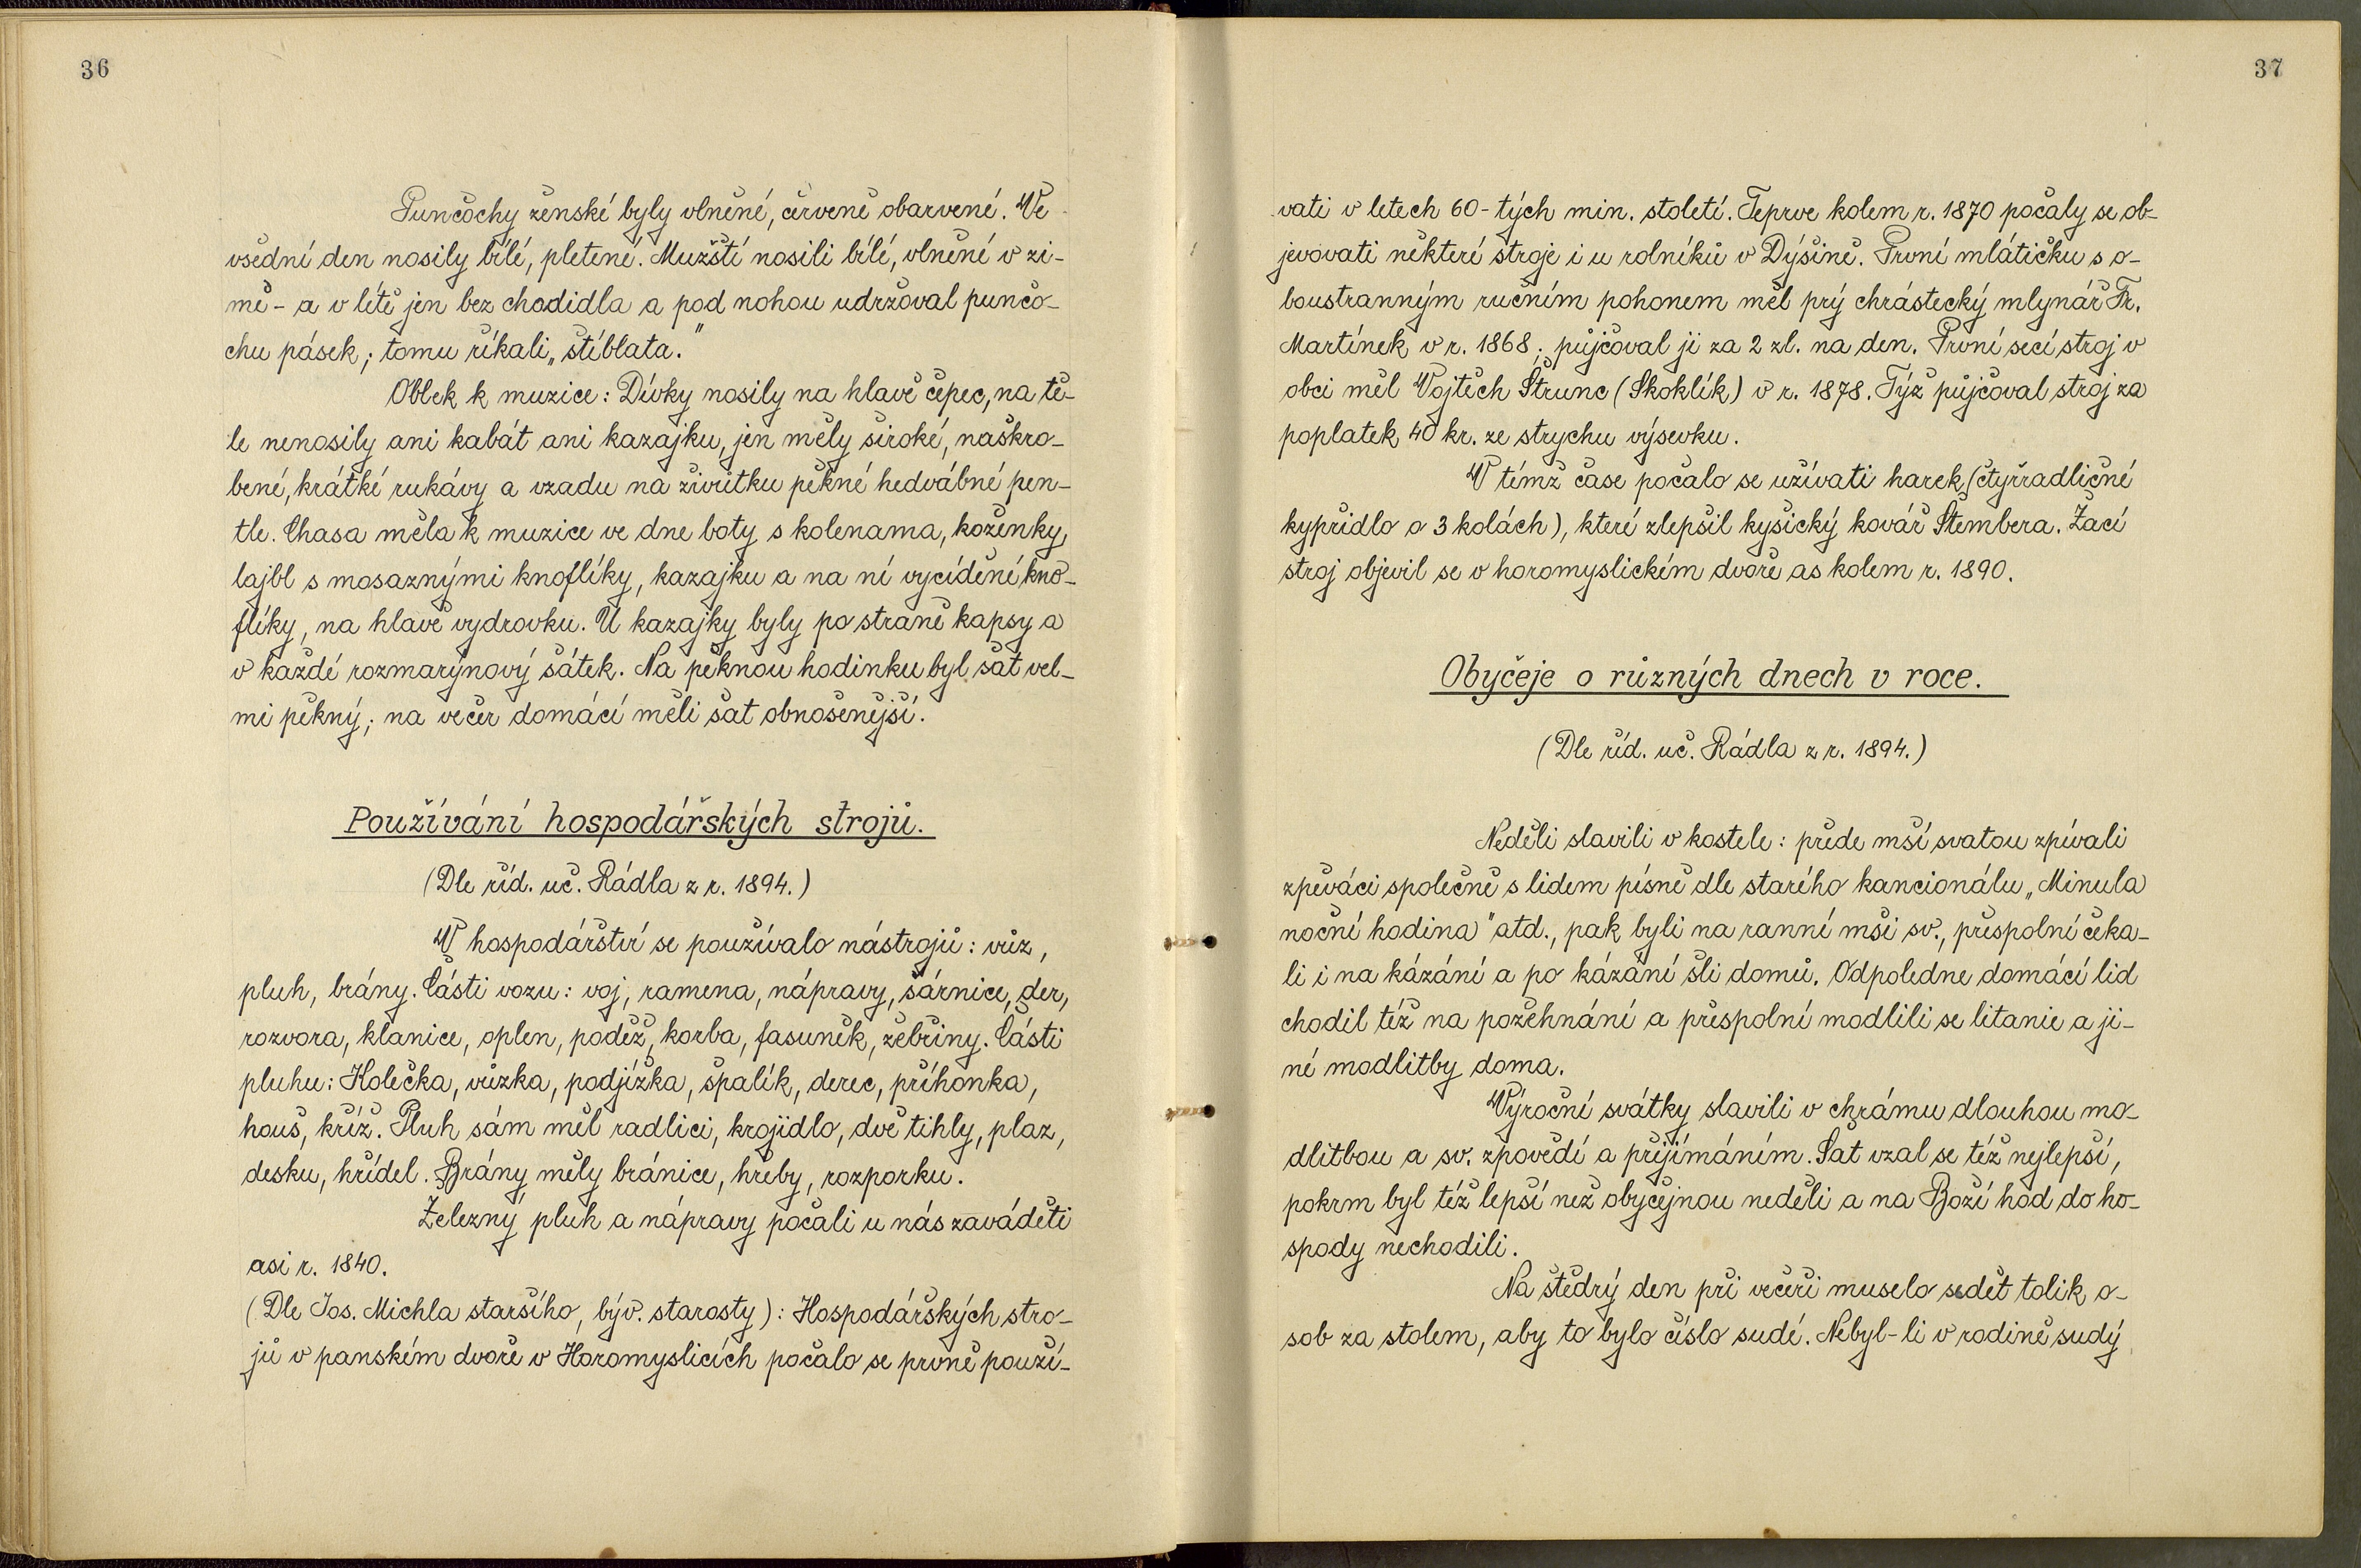 36
Punčochy ženské byly vlněné, červeně obarvené. Ve
všední den nosily bílé, pletené. Mužští nosili bílé, vlněné v zi-
mě - a v létě jen bez chodidla a pod nohou udržoval punčo-
chu pásek; tomu říkali „štíblata."
Oblek k muzice: Dívky nosily na hlavě čepec, na tě-
le nenosily ani kabát ani kazajku, jen měly široké, naškro-
bené, krátké rukávy a vzadu na živůtku pěkné hedvábné pen-
tle. Chasa měla k muzice ve dne boty s kolenama, koženky,
lajbl s mosaznými knoflíky, kazajku a na ní vycíděné kno-
flíky, na hlavě vydrovku. U kazajky byly po straně kapsy a
v každé rozmarýnový šátek. Na pěknou hodinku byl šat vel-
mi pěkný; na večer domácí měli šat obnošenější.
Používání hospodářských strojů.
(Dle říd. uč. Rádla z r. 1894.)
V hospodářství se používalo nástrojů: vůz,
pluh, brány. Části vozu: voj, ramena, nápravy, šárnice, der,
rozvora, klanice, oplen, poděž, korba, fasuněk, žebřiny. Části
pluhu: Kolečka, vůzka, podjížka, špalík, derec, příhonka,
houš, kříž. Pluh sám měl radlici, krojidlo, dvě tihly, plaz,
desku, hřídel. Brány měly bránice, hřeby, rozporku.
Železný pluh a nápravy počali u nás zaváděti
asi r. 1840.
(Dle Jos. Michla staršího, býv. starosty): Hospodářských stro-
jů v panském dvoře v Horomyslicích počalo se prvně použí-
37
vati v letech 60-tých min. století. Teprve kolem r. 1870 počaly se ob-
jevovati některé stroje i u rolníků v Dýšině. První mlátičku s o-
boustranným ručním pohonem měl prý chrástecký mlynář Fr.
Martínek v r. 1868; půjčoval ji za 2 zl. na den. První secí stroj v
obci měl Vojtěch Štrunc (Skoklík) v r. 1878. Týž půjčoval stroj za
poplatek 40 kr. ze strychu výsevku.
V témž čase počalo se užívati harek (čtyřradličné
kypřidlo o 3 kolách), které zlepšil kyšický kovář Štembera. Žací
stroj objevil se v horomyslickém dvoře as kolem r. 1890.
Obyčeje o různých dnech v roce.
(Dle říd. uč. Rádla z r. 1894.)
Neděli slavili v kostele: přede mší svatou zpívali
zpěváci společně s lidem písně dle starého kancionálu „Minula
noční hodina" atd., pak byli na ranní mši sv., přespolní čeka-
li i na kázání a po kázání šli domů. Odpoledne domácí lid
chodil též na požehnání a přespolní modlili se litanie a ji-
né modlitby doma.
Výroční svátky slavili v chrámu dlouhou mo-
dlitbou a sv. zpovědí a přijímáním. Šat vzal se též nejlepší,
pokrm byl též lepší než obyčejnou neděli a na Boží hod do ho-
spody nechodili.
Na štědrý den při večeři muselo sedět tolik o-
sob za stolem, aby to bylo číslo sudé. Nebyl-li v rodině sudý